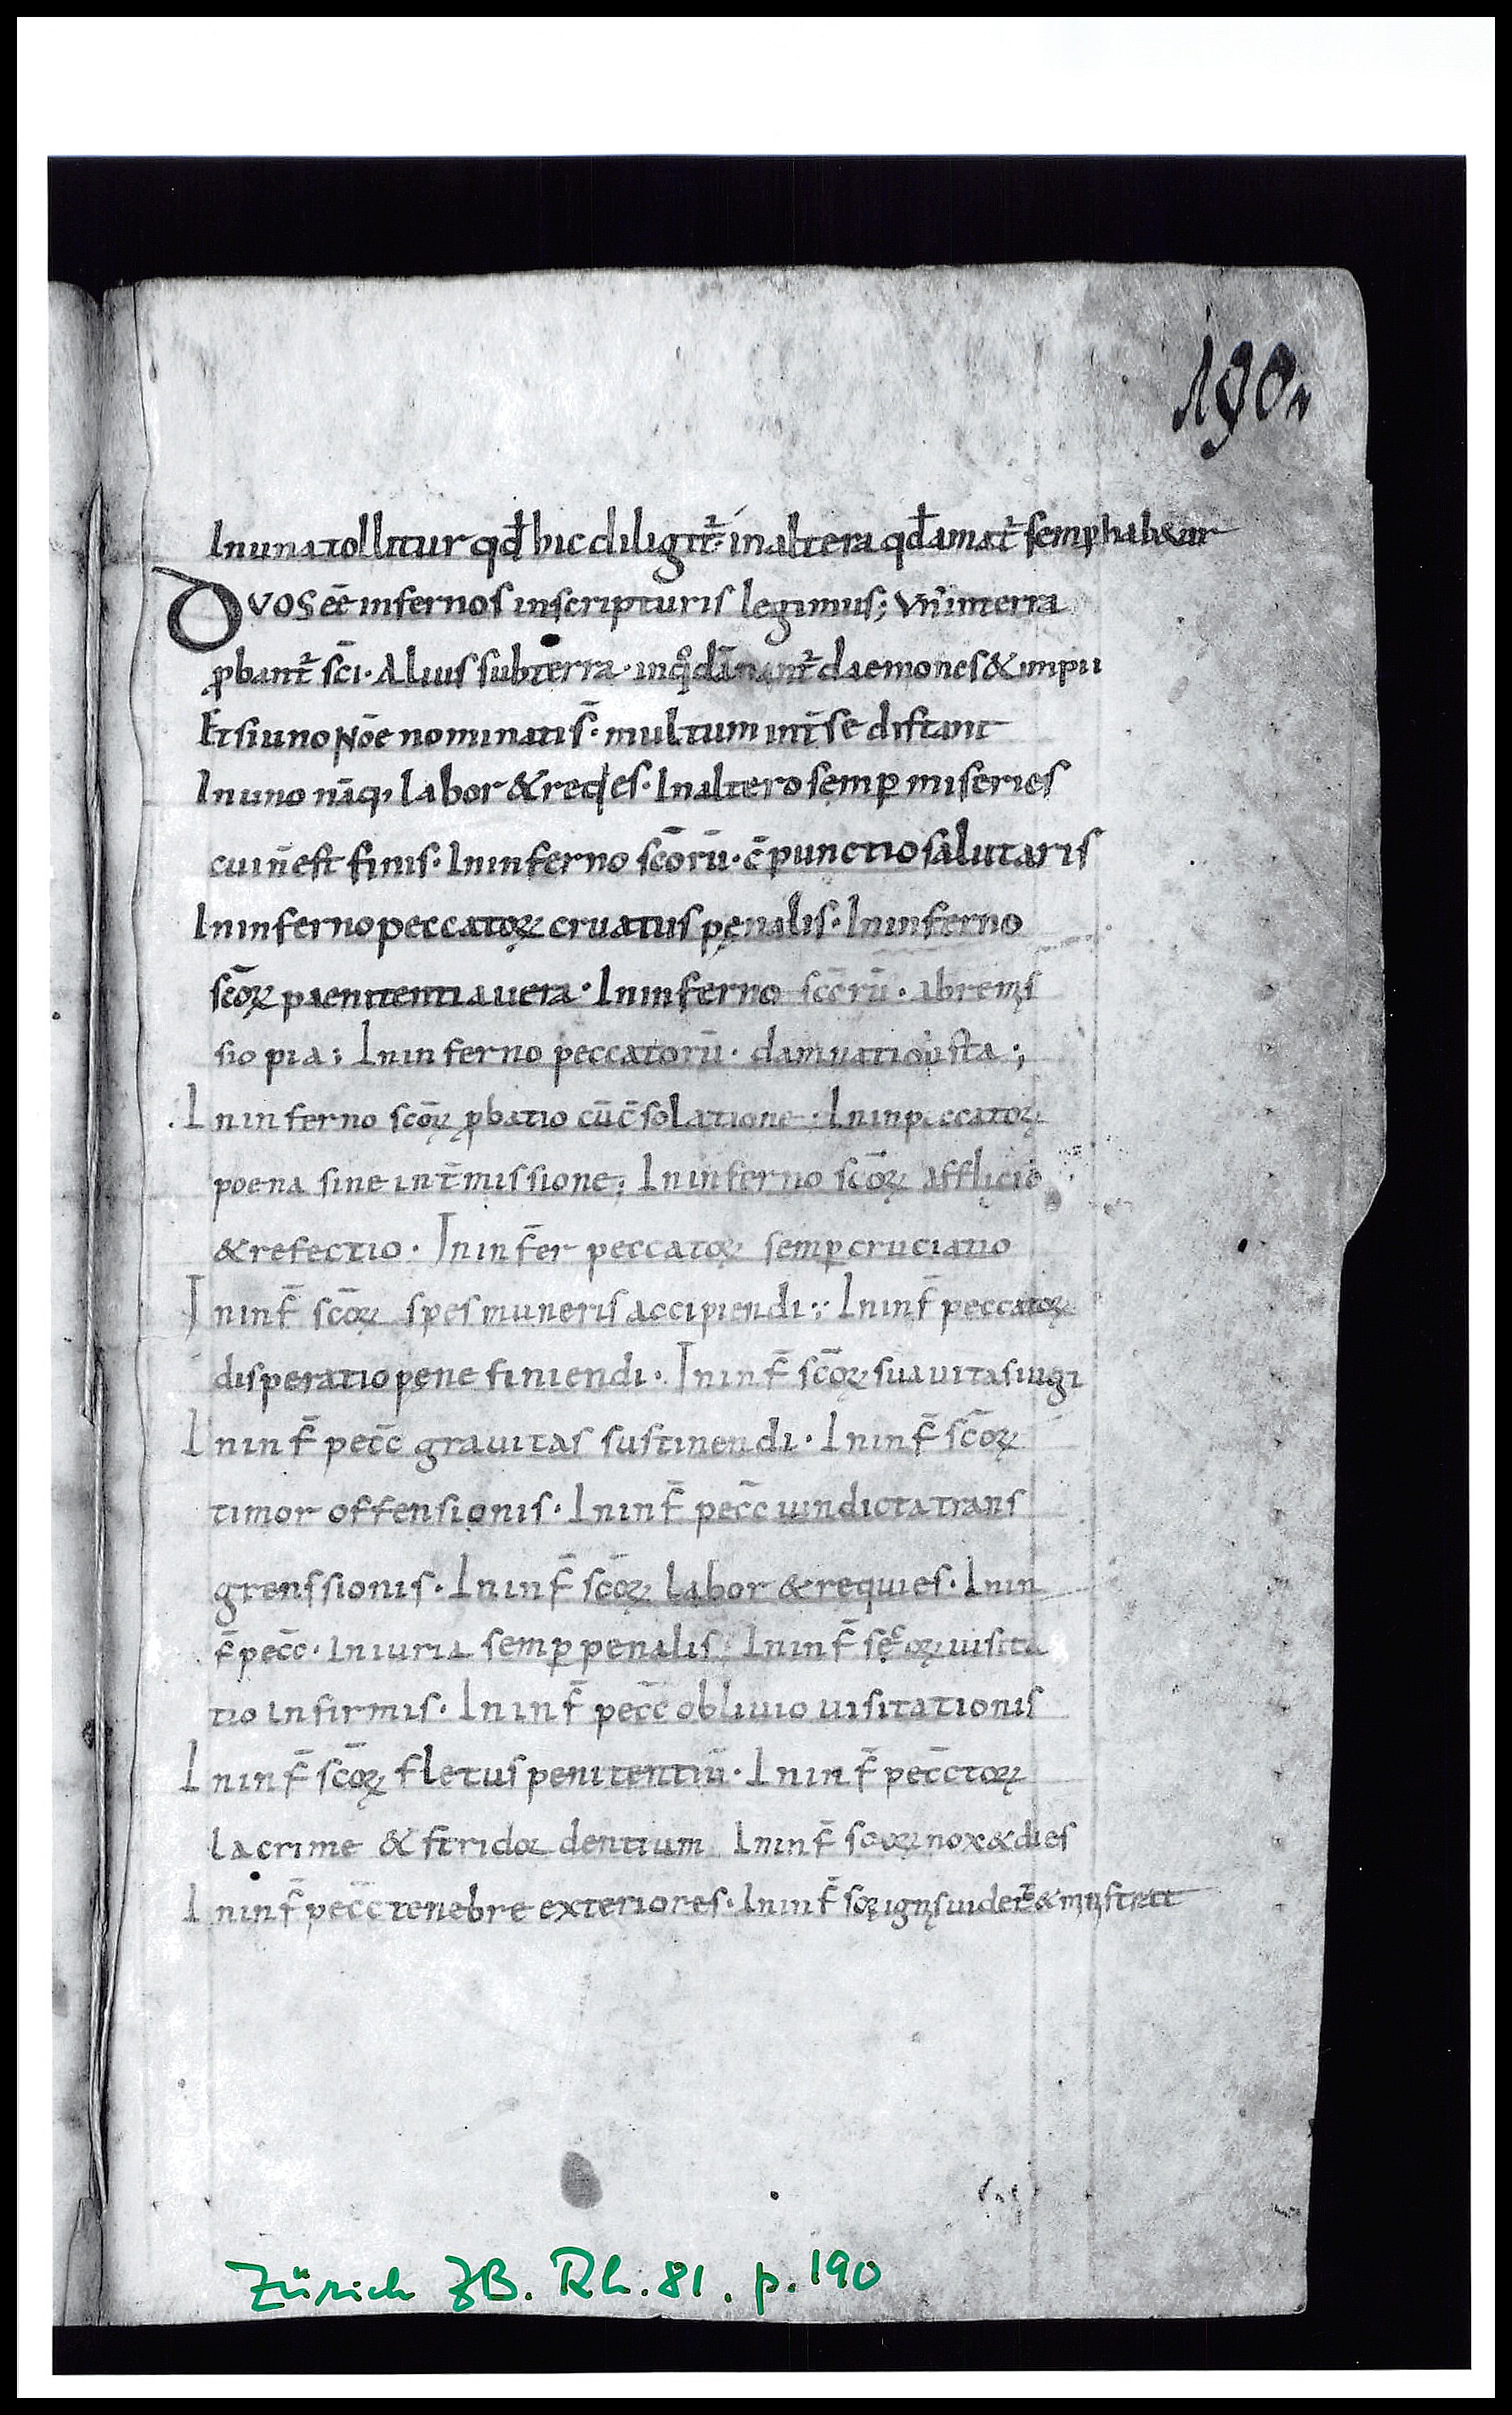 190.
In una tollitur qđ hic diligit᷑· in altera qđ amat᷑ semꝑ hab&ur
DVOS eē infernos in scripturis legimus; Vn̄ in terra
ꝓbant᷑ sc̄i· Alius sub terra· in qͦ dānant᷑ daemones & impii
Et si uno Nōe nominatis̄· multum int̄ se distant
In uno nāq, labor & reqes· In altero semꝑ miseries
cui n̄ est finis· In inferno sc̄orū· c̄punctio salutaris
In inferno peccatoꝝ cruatus pęnalis· In inferno
sc̄oꝝ paenitentia uera· In inferno sc̄orū· abremis
sio pia; In inferno peccatorū· damnatio iusta·,
In inferno sc̄oꝝ ꝓbatio cū c̄solatione· In in peccatoꝝ
poena sine int̄missione; In inferno sc̄oꝝ afflicio
& refectio· In inf̄er peccatoꝝ semꝑ cruciatio
In inf̄ sc̄oꝝ spes muneris accipiendi:· In inf̄ peccatoꝝ
disperatio pene finiendi· In inf̄ sc̄oꝝ suauitas iugi
In inf̄ pecc̄ grauitas sustinendi· In inf̄ sc̄oꝝ
timor offensionis· In inf̄ pecc̄ uindicta trans
grenssionis· In inf̄ sc̄oꝝ labor & requies· In in
f̄ pecc̄· Iniuria semꝑ penalis In inf̄ uisita
tio infirmis· In inf̄ pecc̄ obliuio uisitationis
In inf̄ sc̄oꝝ fletus penitentiū· In inf̄ pecc̄toꝝ
lacrime & stridoꝛ dentium In inf̄ scoꝝ nox & dies
In inf̄ pecc̄ tenebre exteriores· In inf̄ soꝝ
Zürich ZB. Rh. 81. p. 190